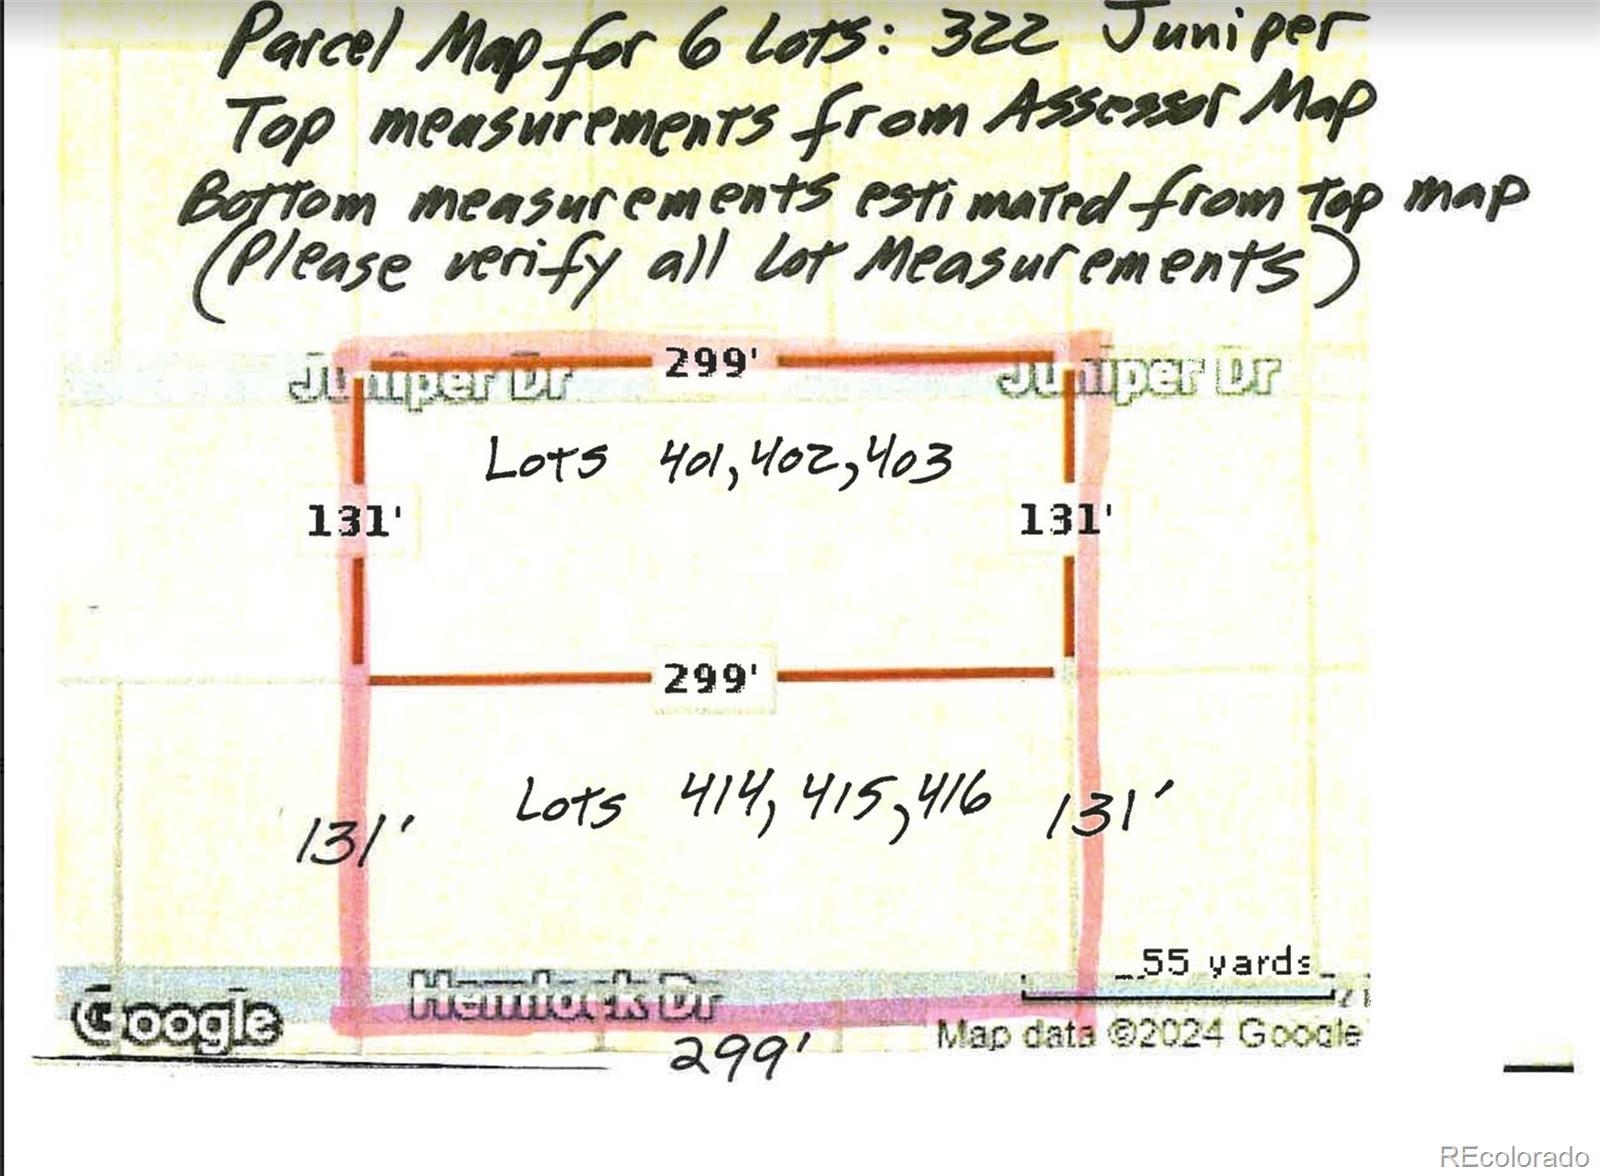 Parcel Map for 6 Lots: 322 Juniper
Top measurements from Assessor Map
Bottom measurements estimated from Top map
(Please verify all Lot Measurements)
299'
Juniper Dr Juniper Dr
Lots 401, 402, 403
131' 131'
299'
Lots 414, 415, 416
131' 131'
55 yards
Hemlock Dr
Google
Map data ©2024 Google
299'
REcolorado